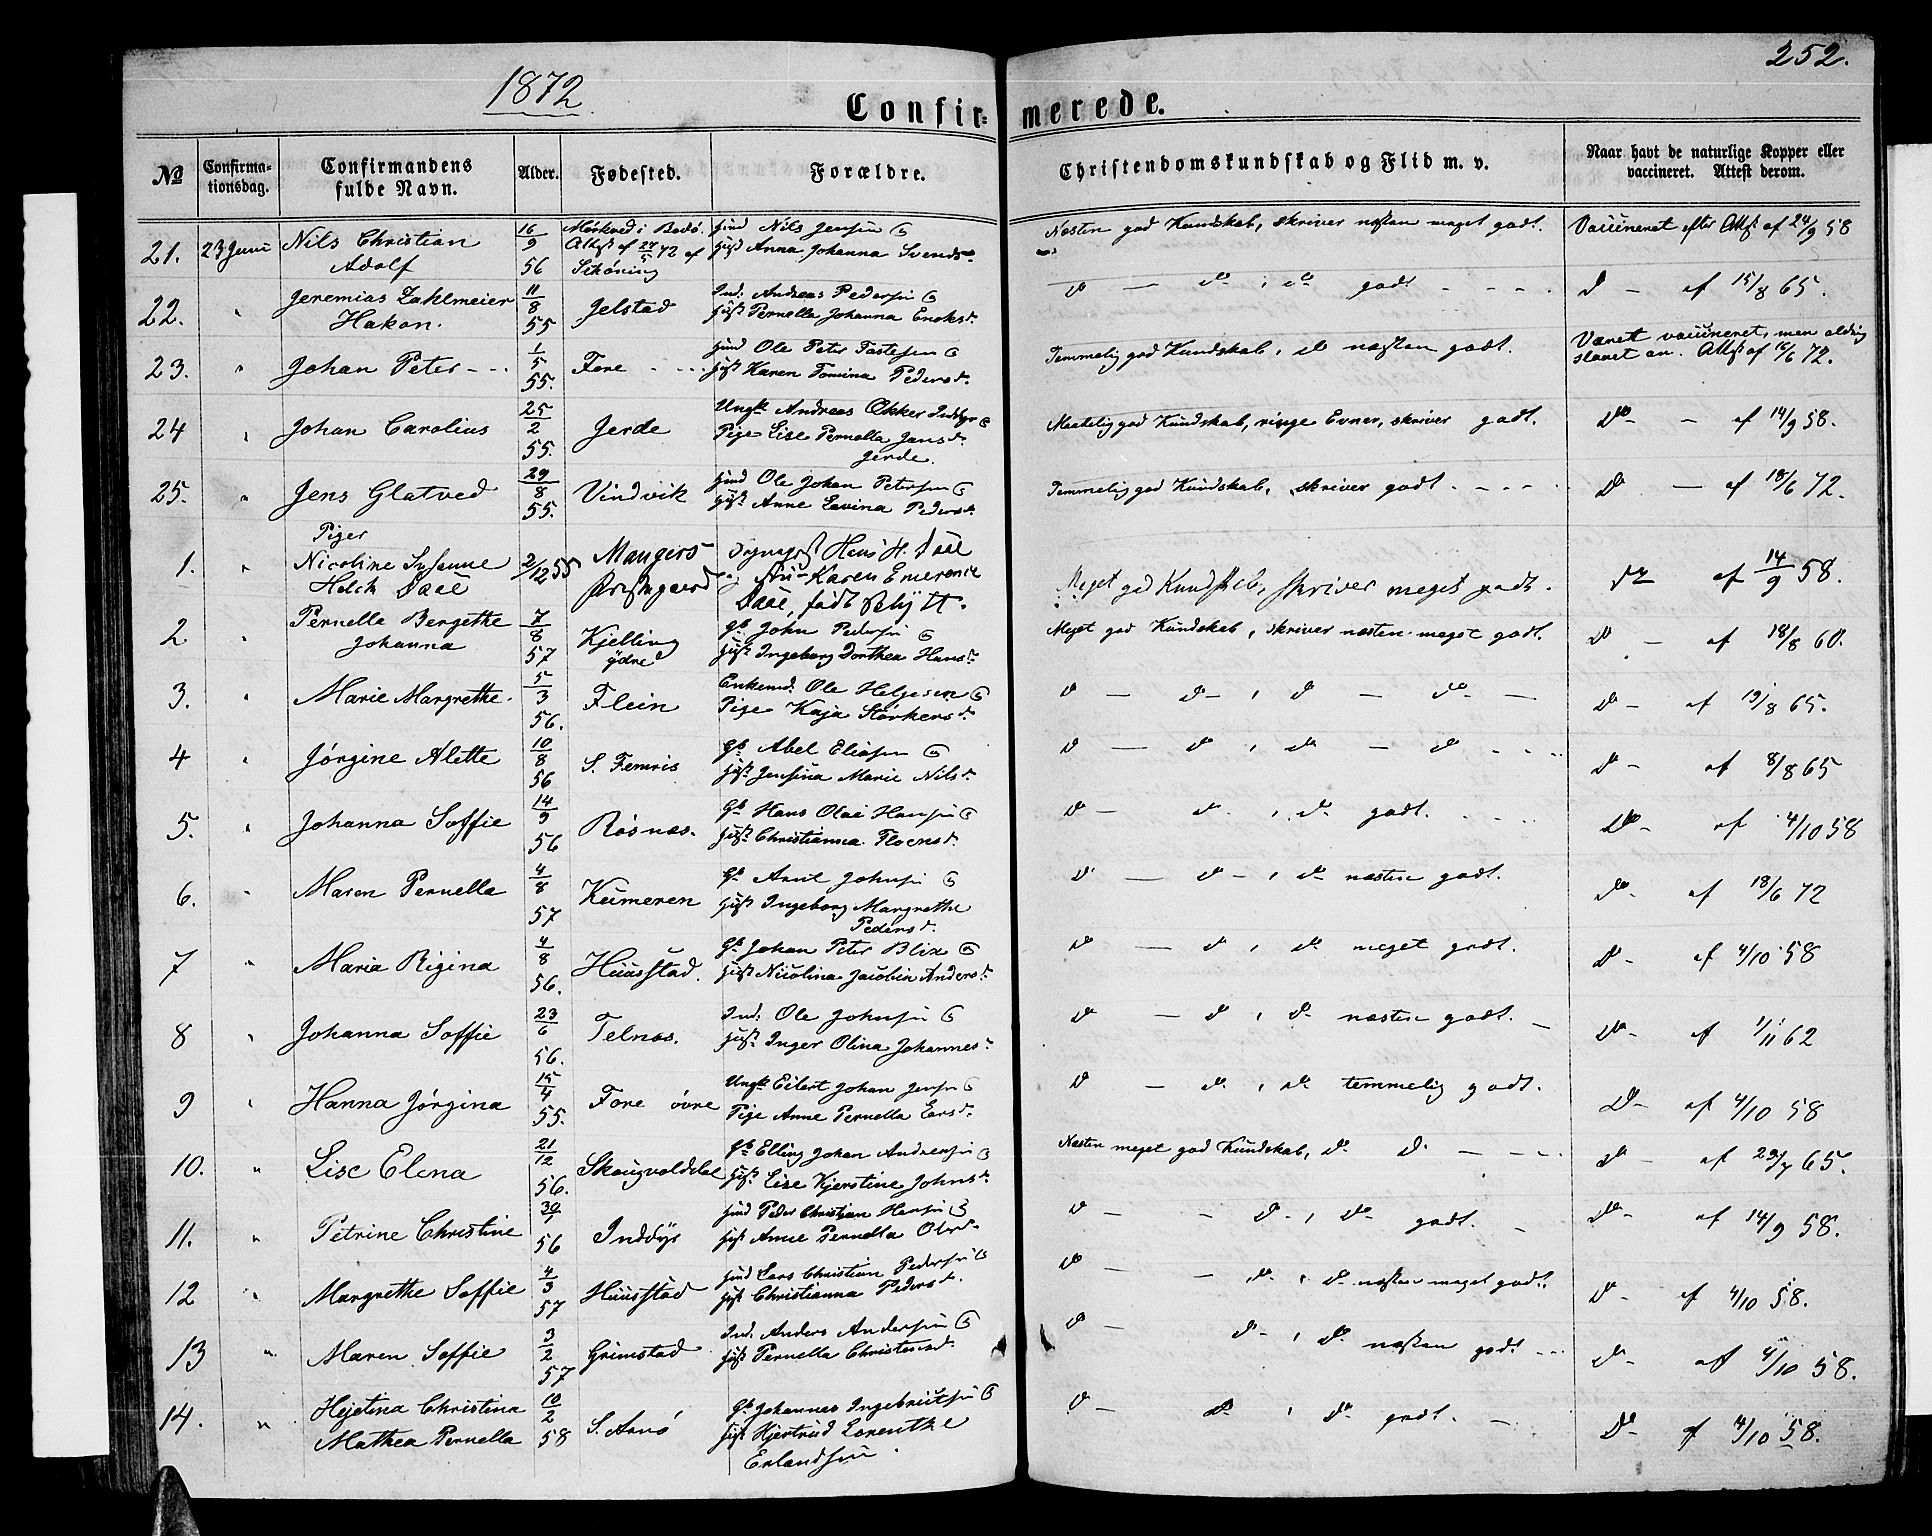 1872
252.
Confir=merede.
№
Confirma-
tionsdag.
Confirmandens
fulde Navn.
Alder.
Fødested.
Forældre.
Christendomskundskab og Flid m. v.
Naar havt de naturlige Kopper eller
vaccineret. Attest derom.
21. 23 Juni Nils Christian Adolf 16/9 56 Mørkved i Bodø. Attest af 24/5 72 af Nils Jensen Anna Johanna Svendsd. Næsten god Kundskab, skriver næsten meget godt. Vaccineret efter Attest af 24/9 58
22. " Jeremias Zahlmeier Hakon. 11/8 55 Jelstad Ind. Andreas Pedersen Hust. Pernella Johanna Enoksd. D — D, D godt - - - D - af 15/8 65.
23. " Johan Peter - - 1/5 55. Fore - - - Ole Peter Tostesen Hust. Karen Tomina Pedersd. Temmelig god Kundskab, D næsten godt. Været vaccineret, men aldrig slaaet an. Attest af 16/6 72.
24 " Johan Carolius 25/2 55. Jerde Ungk. Andreas Økker Inddyr Pige Lise Pernella Jansd. Jerde. Maatelig god Kundskab, ringe Evner, skriver godt. Do - - af 14/9 58.
25. " Jens Glatved 29/8 55. Vindvik Ole Johan Petersen Hust. Anne Lavina Pedersd. Temmelig god Kundskab, skriver godt. - - - D — af 18/6 72.
Piger
1. " Nicoline Susanne Helch Daae 2/12 55 Mangers Præstegaard Sognepræst Hans H. Daae og Fru Karen Emerence Daae, født Schytt. Meget god Kundskab, skriver meget godt. Do af 14/9 58.
2 " Pernelle Bergethe Johanna 7/8 57 Kjelling ydre Gb. John Pedersen Hust. Ingeborg Dorthea Hansd. Meget god Kundskab, skriver næsten meget godt. D - af 18/8 60.
3. " Marie Margrethe. 5/3 56. Flein Enkemd. Ole Helgesen Pige Kaja Størkersd. D — D -, D — Do — D - af 19/8 65.
4 " Jørgine Alette 10/8 56 S. Femris Gb. Abel Eliasen Hust. Jensina Marie Nilsd. D — D, D — D D - af 8/8 65
5. " Johanna Soffie 14/9 56 Røsnæs. Gb. Hans Olai Hansen Hust. Christianna Floensd. D - D, D godt. Do - af 4/10 58
6. " Maren Pernella 4/8 57 Kumeren Gb. Arnt Johnsen Hust. Ingeborg Margrethe Pedersd. D — D -, D næsten godt. Do - af 18/6 72
7 " Maria Rigina 4/8 56. Huusstad. Gb. Johan Peter Blix Hust. Nicolina Jacobin Andersd. D — D, D meget godt. D - af 4/10 58
8 " Johanna Soffie 23/6 56. Telnæs. Ind. Ole Johnsen Hust. Inger Olina Johannesd. D — D, D næsten godt. — Do - af 1/11 62
9 " Hanna Jørgina 15/4 55. Fore øvre Ungk. Eilert Johan Jensen Pige Anne Pernella Larsd. D — D, D temmelig godt. D - af 4/10 58
10. " Lise Elena 21/12 56. Skaugvolddal Gb. Elling Johan Andersen Hust. Lise Kjerstine Johnsd. Næsten meget god Kundskab, D D - - - D - af 29/7 65.
11. " Petrine Christine 56 Inddyr Peder Christian Hansen Hust. Anne Pernella Olsd. D — - D -, D godt. - Do - af 14/9 58.
12 " Margrethe Soffie 4/3 57 Huusstad Lars Christian Pedersen Hust. Christianna Pedersd. D — - D, D næsten meget godt. D - af 4/10 58.
13 " Maren Soffie 3/2 57 Grimstad Ind. Anders Andersen Hust. Pernella Christensd. D — D -, D næsten godt. - - D - af 4/10 58.
14. " Hejetina Christina Mathea Pernella 10/2 58 S. Arnø Gb. Johannes Ingebrigtsen Hust. Hjertrud Lorentke Erlandsen. D — D, D godt. - D - af 4/10 58.